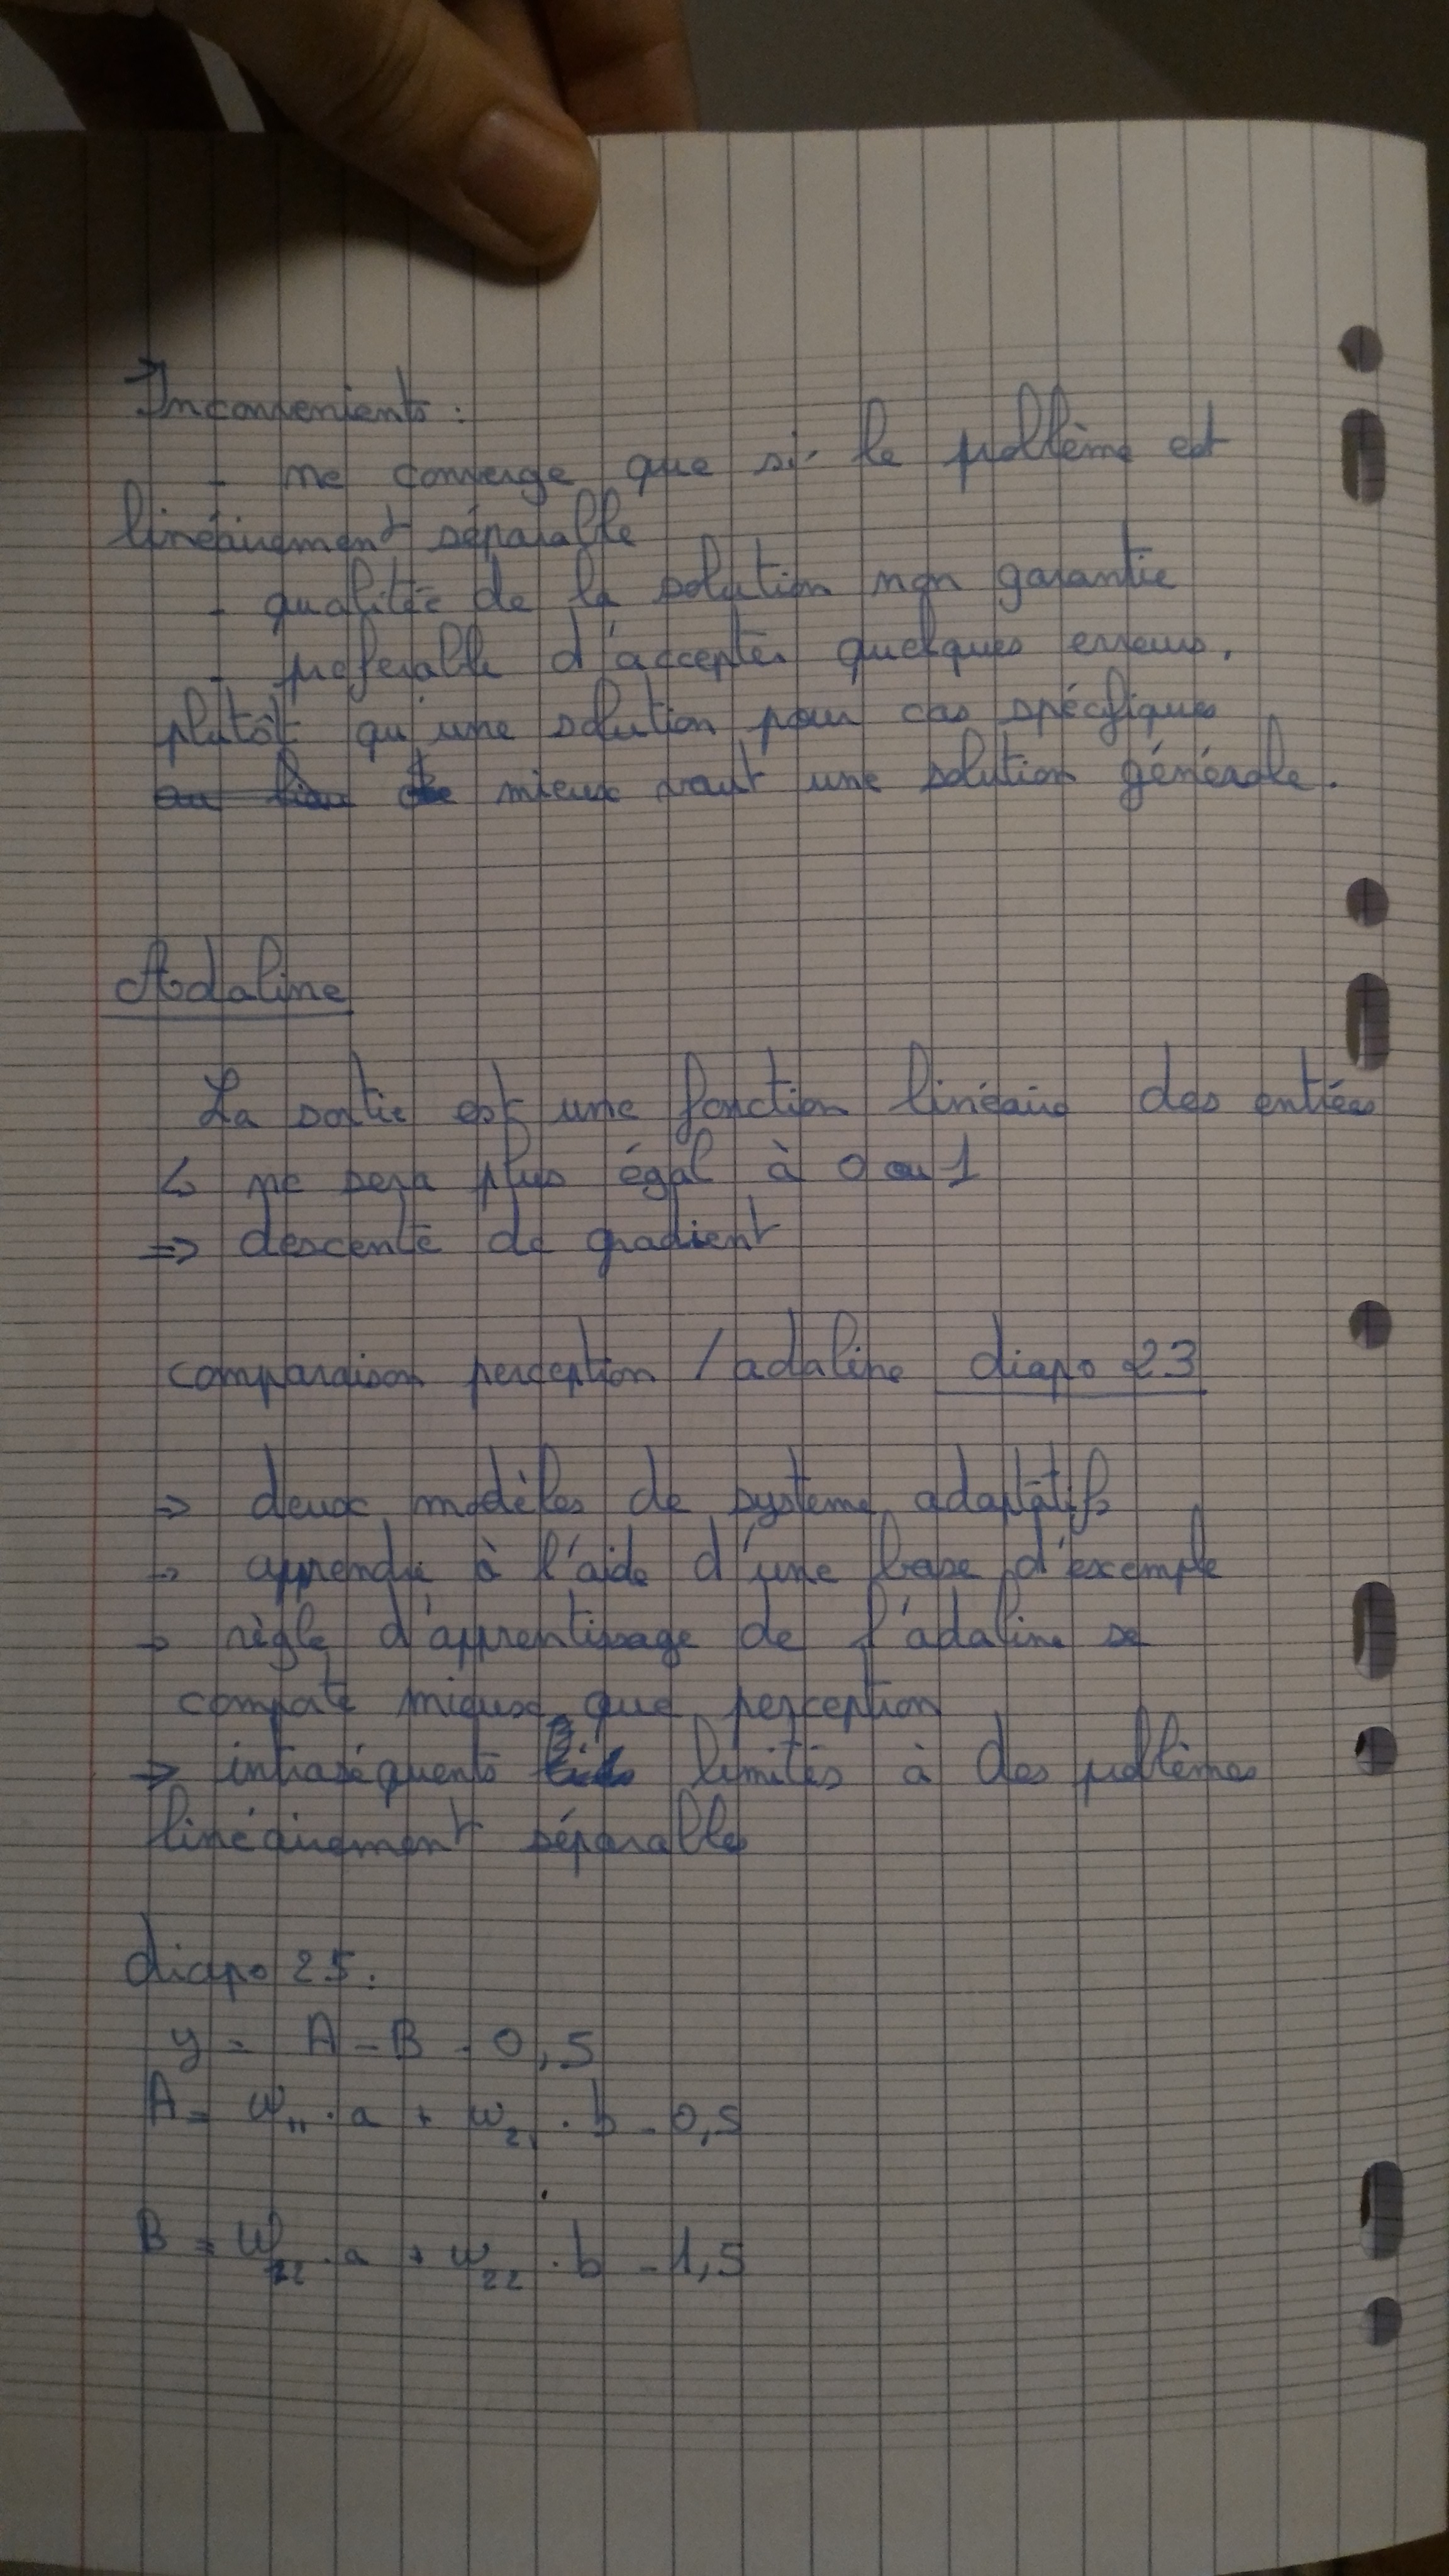 → Inconvenients :
- ne converge que si le problème est
linéairement séparable
- qualitée de la solution non garantie
- preferable d'accepter quelques erreurs,
plutôt qu'une solution pour cas spécifiques
au lieu de mieux vaut une solution générale.
Adaline
La sortie est une fonction linéaire des entrées
↳ ne sera plus égal à 0 ou 1
⇒ descente de gradient
comparaison perception / adaline diapo 23
⇒ deux modèles de systeme adaptatifs
→ apprendre à l'aide d'une base d'exemple
→ règle d'apprentissage de l'adaline se
comporte mieux que perception
→ limités à des problèmes
linéairement séparables
diapo 25.
y = A - B - 0,5
A = w₁₁ . a + w₂₁ . b - 0,5
B = w₁₂ . a + w₂₂ . b - 1,5